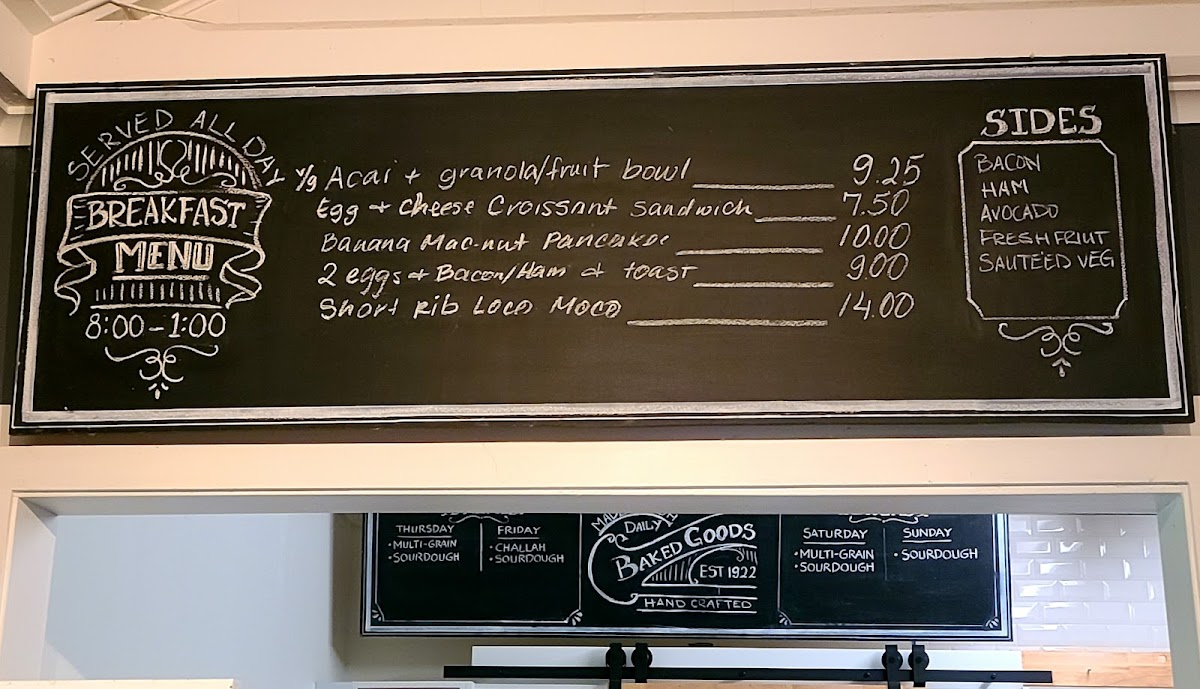 SERVED ALL DAY
BREAKFAST
MENU
8:00-1:00
v/g Acai + granola/fruit bowl 9.25
Egg + Cheese Croissant sandwich 7.50
Banana Mac-nut Pancake 10.00
2 eggs + Bacon/Ham + toast 9.00
Short Rib Loco Moco 14.00
SIDES
BACON
HAM
AVOCADO
FRESH FRIUT
SAUTÉED VEG
THURSDAY
• MULTI-GRAIN
• SOURDOUGH
FRIDAY
• CHALLAH
• SOURDOUGH
DAILY
BAKED GOODS
EST 1922
HAND CRAFTED
SATURDAY
• MULTI-GRAIN
• SOURDOUGH
SUNDAY
• SOURDOUGH